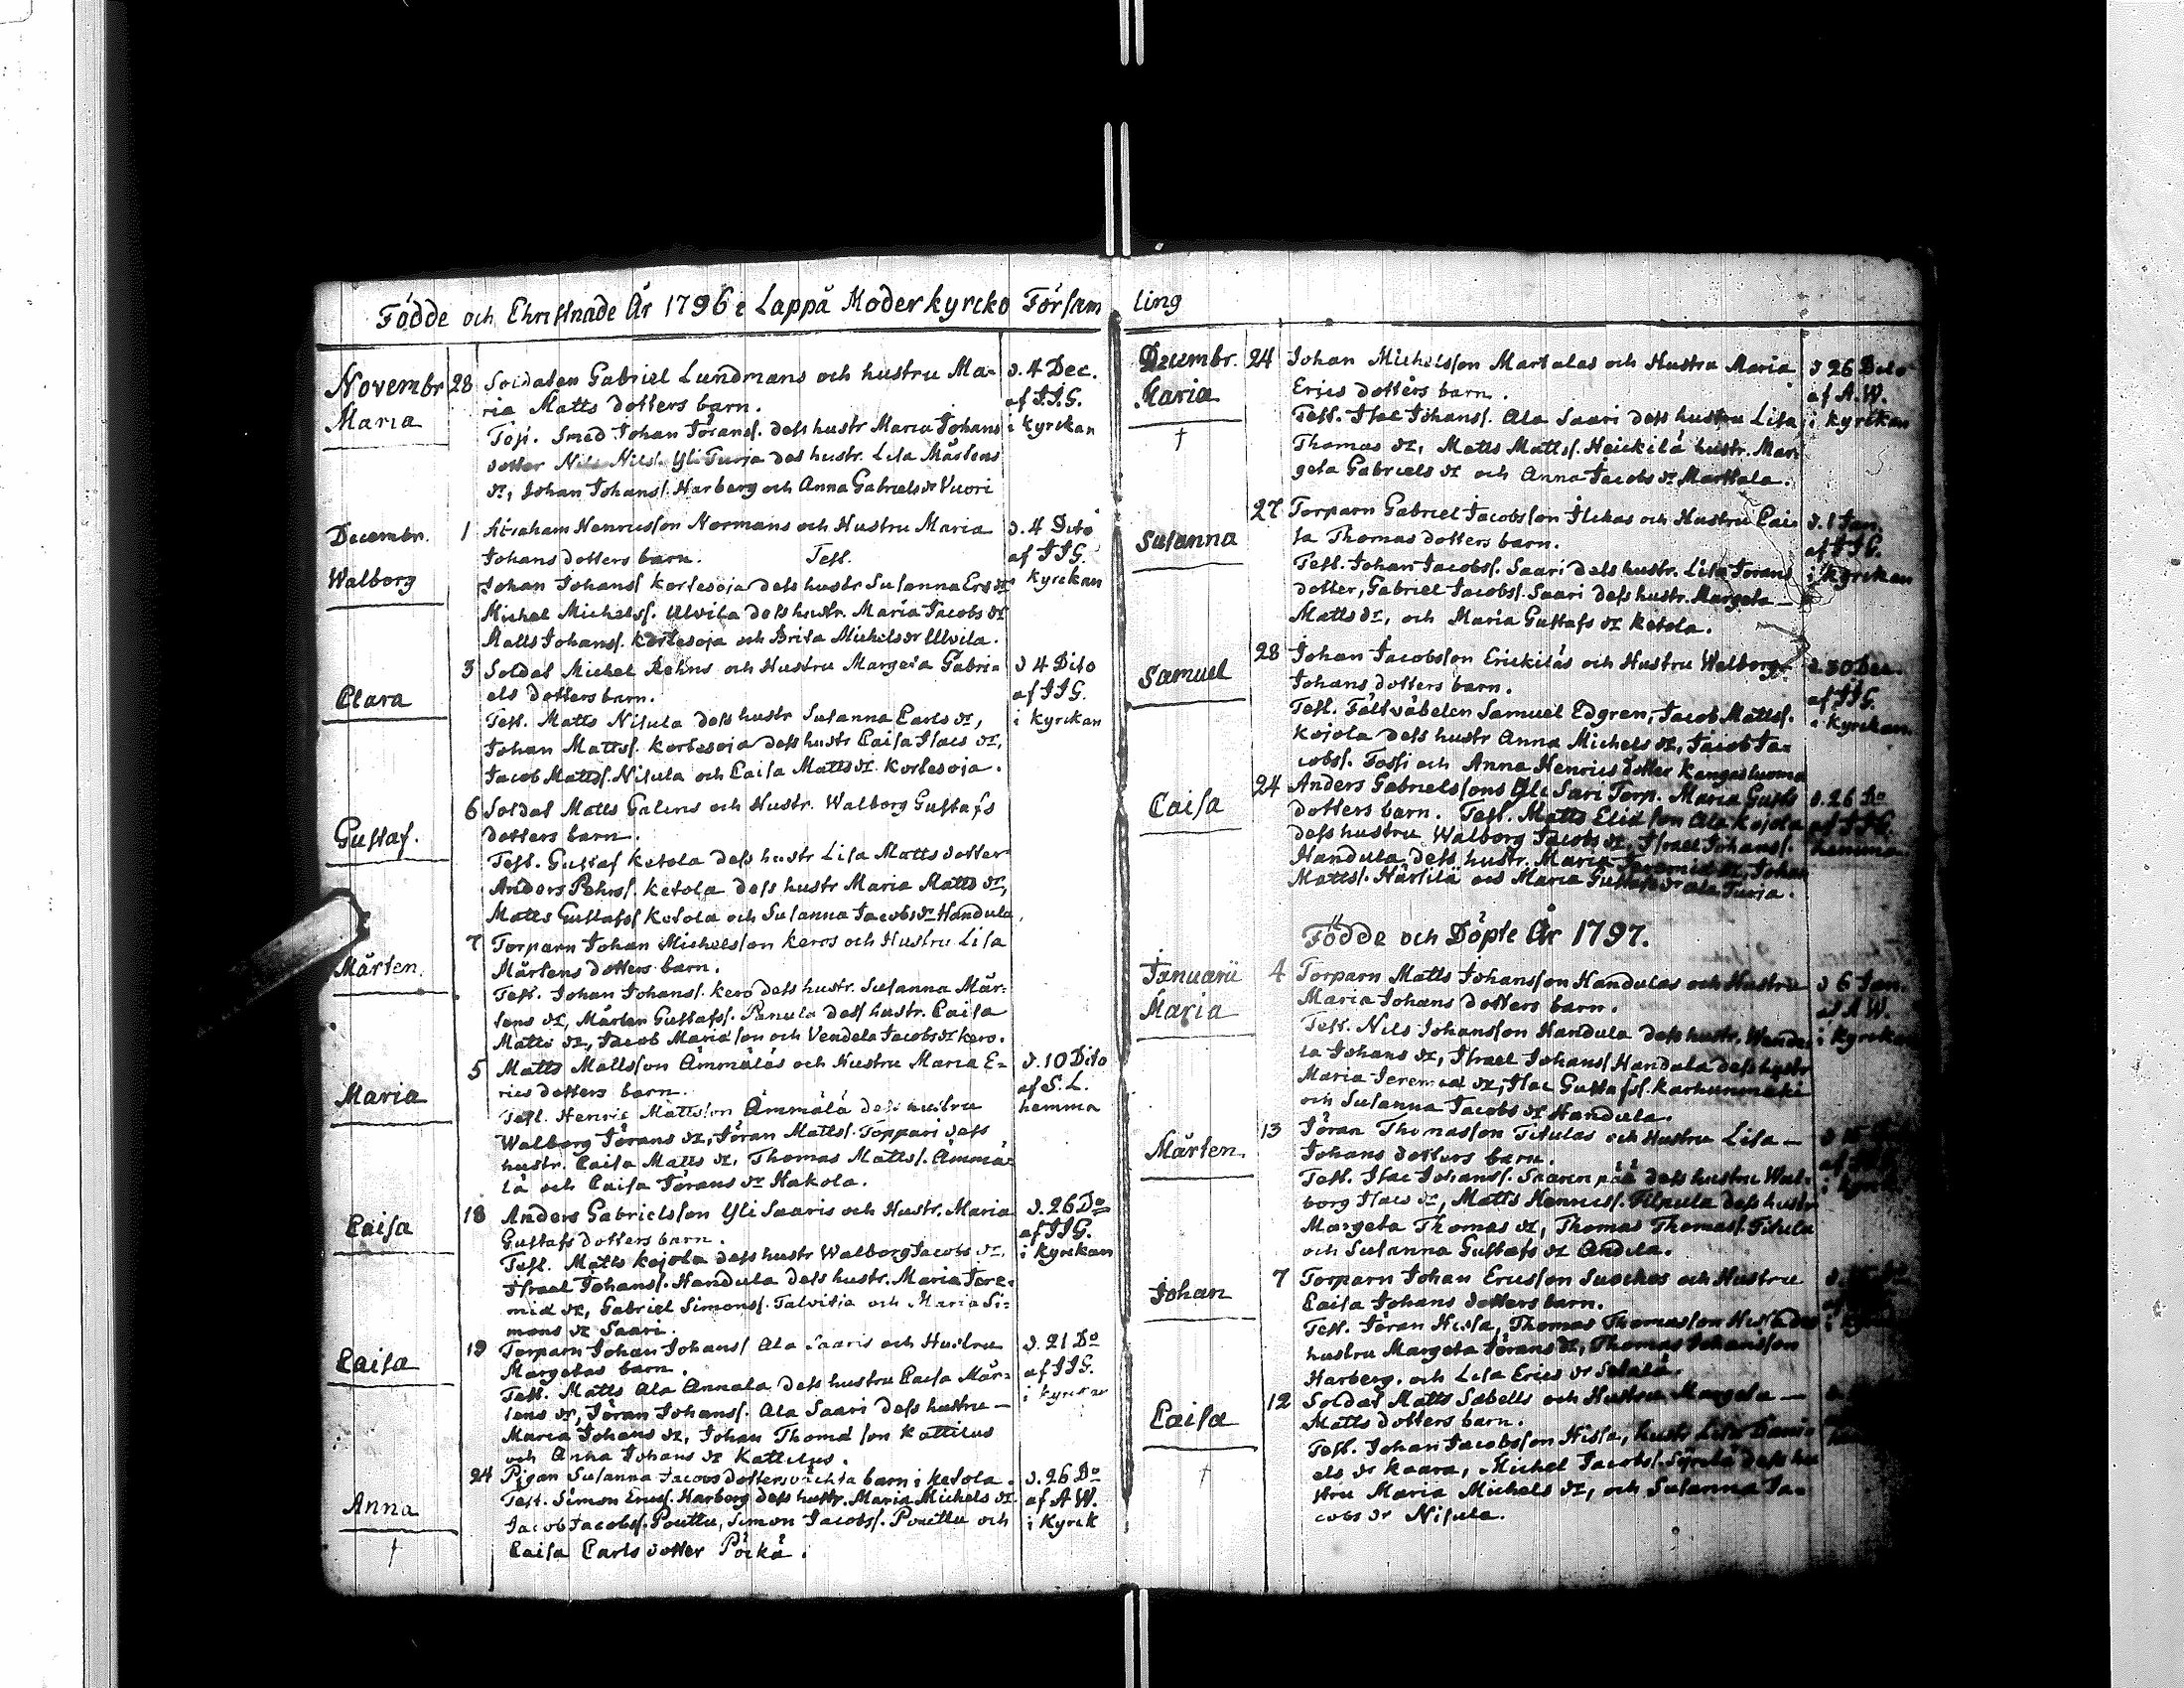 Födde och Christnade År 1796 i Lappå Moderkyrcko Försam
ling
Novembr 28 Soldaten Gabriel Lundmans och hustru Ma- d. 4 Dec.
Maria ria Matts dotters barn. af J.J.G.
Test. Smed Johan Jöranss. dess hustr Maria Johans i kyrkan
dotter Nils Nilss. Yli Turja des hustr. Lisa Mårtens
dr, Johan Johanss. Harberg och Anna Gabriels dr Vuori
Decembr. 1 Abraham Henricsson Normans och Hustru Maria d. 4 Dito
Walborg Johans dotters barn. Test. af JJG.
Johan Johanss kortesoja dess hustr Susanna Ers dr i kyrckan
Michel Michelss. Ulvila dess hustr. Maria Jacobs dr
Matts Johanss. kortesoja och Brita Michels dr Ulvila.
Clara 3 Soldat Michel Rehns och Hustru Margeta Gabri= d 4 Dito
els dotters barn. af JJG.
Test. Matts Nisula dess hustr Susanna Carls dr, i kyrckan
Johan Mattss. kortesoja dess hustr Caisa Isacs dr,
Jacob Mattss. Nisula och Caisa Matts dr. kortesoja.
Gustaf. 6 Soldat Matts Galens och Hustr. Walborg Gustafs
dotters barn.
Test. Gustaf ketola dess hustr Lisa Matts dotter
Anders Pehrss. ketola dess hustr Maria Matts dr,
Matts Gustafss ketola och Susanna Jacobs dr Handula.
Mårten. 7 Torparn Johan Michelsson keros och Hustru Lisa
Mårtens dotters barn.
Test. Johan Johanss. kero dess hustr. Susanna Mår-
tens dr, Mårten Gustafss. Panula dess hustr. Caisa
Matts dr, Jacob Mariä son och Vendela Jacobs dr kero.
Maria 5 Matts Mattsson Ämmäläs och Hustru Maria E- d. 10 Dito
rics dotters barn. af S. L.
Test. Henric Mattsson Ämmälä dess hustru hemma
Walborg Jörans dr, Jöran Mattss. Toppari dess
hustr. Caisa Matts dr. Thomas Mattss. Ämmä-
lä och Caisa Jörans dr Hakola.
Caisa 18 Anders Gabrielsson Yli Saaris och Hustr. Maria d. 26 Do
Gustafs dotters barn. af JJG.
Test. Matts kojola dess hustr Walborg Jacobs dr, i kyrckan
Israel Johanss. Handula dess hustr. Maria Jere-
miä dr, Gabriel Simonss. Talvitia och Maria Si=
mons dr Saari.
Caisa 19 Torparn Johan Johanss Ala Saaris och Hustru d. 21 Do
Margetas barn. af JJG.
Test. Matts Ala Annala dess hustru Caisa Mår= i kyrckan
tens dr, Jöran Johanss. Ala Saari dess hustru —
Maria Johans dr, Johan Thomä son kattilus
och Anna Johans dr Kattilus.
Anna 24 Pigan Susanna Jacobs dotters oächta barn i ketola. d. 26 Do
† Test. Simon Ericss. Harberg dess hustr. Maria Michels dr. af A W.
Jacob Jacobss. Pouttu, Simon Jacobss. Pouttu och i Kyrck
Caisa Carls dotter Pöckä.
Decembr. 24 Johan Michelsson Martalas och Hustru Maria d 26 Dito
Maria Erics dotters barn. af A.W.
† Test. Isac Johanss. Ala Saari dess hustru Lisa i kyrckan
Thomas dr, Matts Mattss. Heickilä hustr. Mar-
geta Gabriels dr och Anna Jacobs dr Marttala.
Susanna 27 Torparn Gabriel Jacobsson Ilckas och Hustru Cai- d. 1 Jan.
sa Thomas dotters barn. af JJG.
Test. Johan Jacobss. Saari dess hustr. Lisa Jörans i kyrckan
dotter, Gabriel Jacobss. Saari dess hustr. Margeta —
Matts dr, och Maria Gustafs dr ketola.
Samuel 28 Johan Jacobsson Erickiläs och Hustru Walborg d. 30 Dec.
Johans dotters barn. af JJG.
Test. Fältväbelen Samuel Edgren, Jacob Mattss. i kyrckan.
kojola dess hustr Anna Michels dr, Jacob Ja-
cobss. Fossi och Anna Henrics dotter kangasluoma
Caisa 24 Anders Gabrielssons Yli Sari Torp. Maria Gusts d. 26 Do
dotters barn. Test. Matts Eliä son Ala kojola af JJG.
dess hustru Walborg Jacobs dr, Israel Johanss. hemma
Handula dess hustr. Maria Jeremiä dr, Johan
Mattss. Härsilä och Maria Gustafs dr ala Turja.
Födde och Döpte År 1797.
Januarii 4 Torparn Matts Johansson Handulas och Hustru d 6 Jan.
Maria Maria Johans dotters barn. af A W.
Test. Nils Johansson Handula dess hustr. Wende- i kyrckan
la Johans dr, Israel Johanss Handula dess hustr
Maria Jeremiä dr, Isac Gustafss. karhunmäki
och Susanna Jacobs dr Handula.
Mårten. 13 Jöran Thomasson Tisulas och Hustru Lisa —
Johans dotters barn.
Test. Isac Johanss. Saaren pää dess hustru Wal-
borg Isacs dr, Matts Henricss. Filpula dess hustr
Margeta Thomas dr, Thomas Thomass. Tisula
och Susanna Gustafs dr Andila.
Johan 7 Torparn Johan Ericsson Suockos och Hustru
Caisa Johans dotters barn.
Test. Jöran Hissa, Thomas Thomasson
hustru Margeta Jörans dr, Thomas Johansson
Harberg. och Lisa Erics dr
Caisa 12 Soldat Matts Sabells och Hustru Margeta —
† Matts dotters barn.
Test. Johan Jacobsson Hissa, hustr Lisa Dani-
els dr kaara, Michel Jacobss. dess hu
stru Maria Michels dr, och Susanna Ja-
cobs dr Nisula.